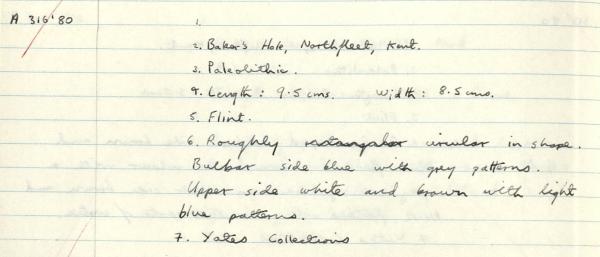 A 316'80
1.
2. Baker's Hole, Northfleet, Kent.
3. Paleolithic.
4. Length: 9.5 cms. Width: 8.5 cms.
5. Flint.
6. Roughly rectangular circular in shape.
Bulbar side blue with grey patterns.
Upper side white and brown with light
blue patterns.
7. Yates Collections